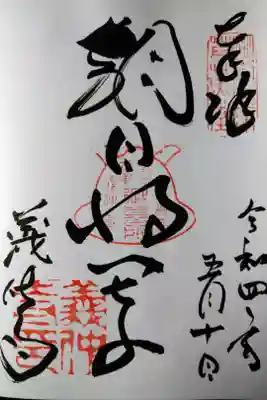 奉拝
令和四年
五月十日
朝日将軍
義仲寺
義仲寺印